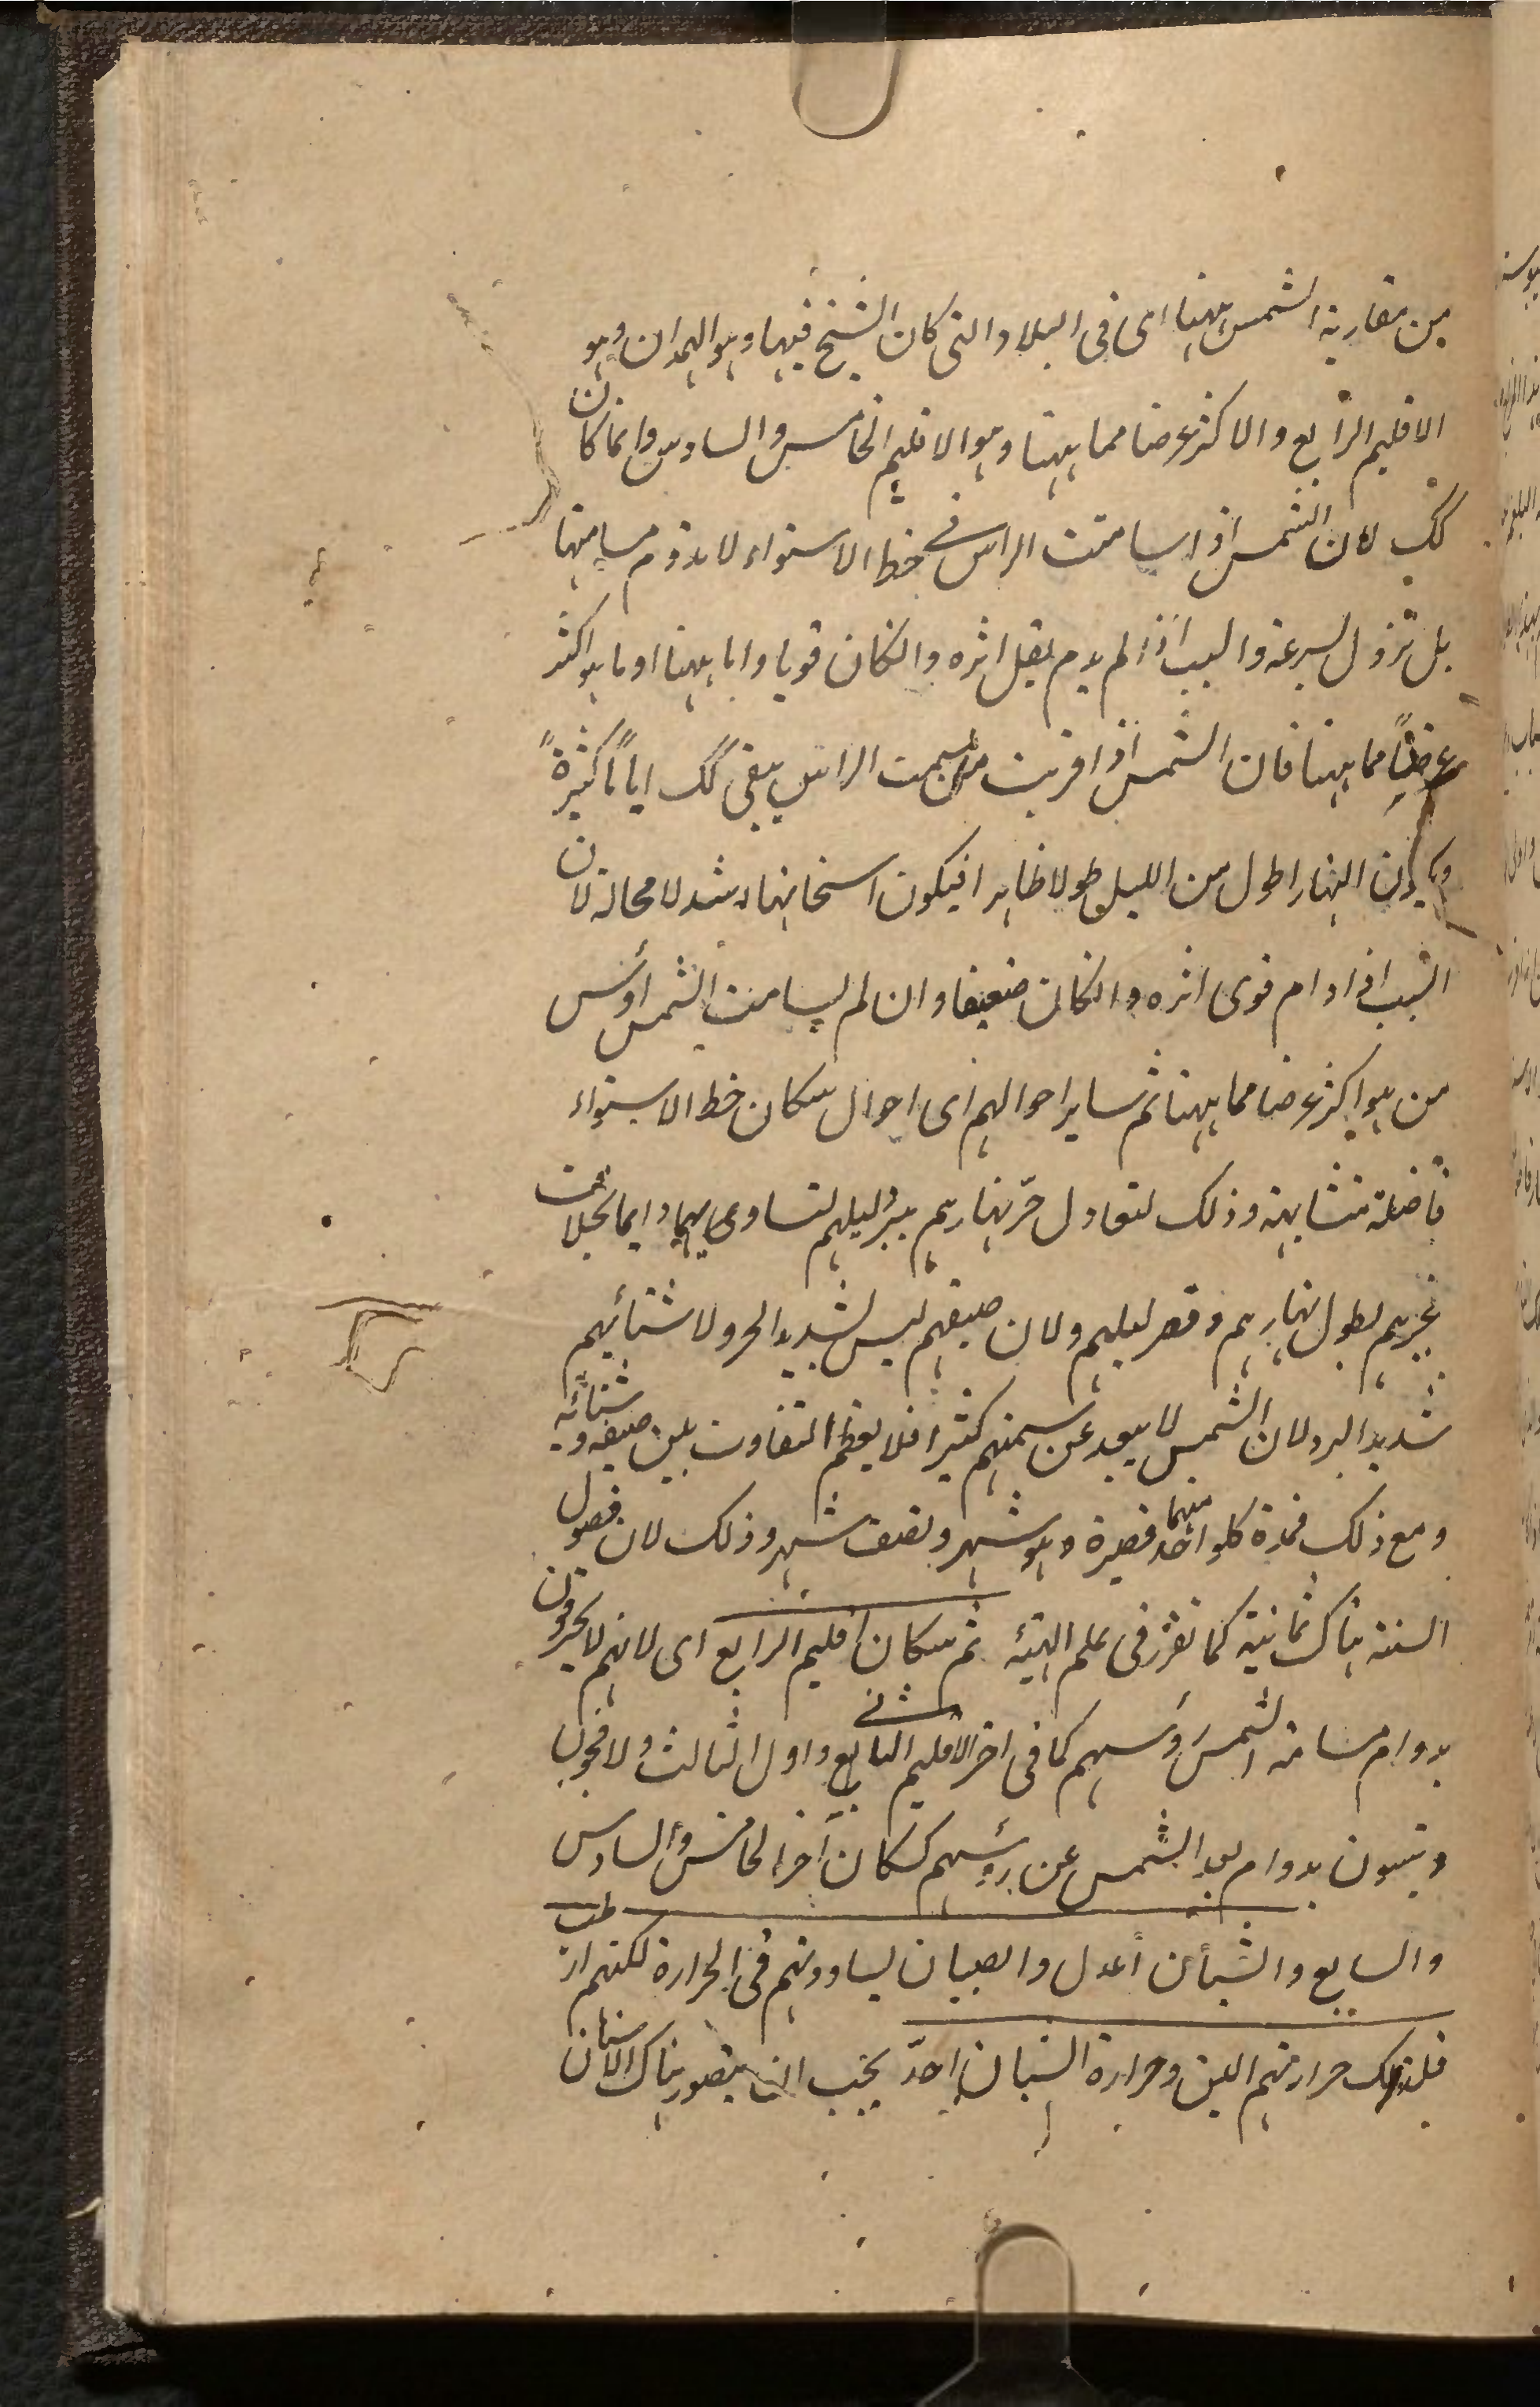 من مقاربة الشمس ههنا اى فى البلاد التى كان الشيخ فيها وهو الهمدان وهو
الاقليم الرابع والاكثر عرضا مما ههنا وهو الاقليم الخامس والسادس وانما كان
كك لان الشمس اذا سامتت الراس فى خط الاستواء لا يدوم مسامتها
بل تزول بسرعة والسبب اذا لم يدم يقل اثره وانكان قويا واما ههنا او ما هو اكثر
عرضاً مما ههنا فان الشمس اذا قربت من سمت الراس يبقى كك اياماً كثيرةً
ويكون النهار اطول من الليل طولا ظاهرا فيكون اسخانها اشد لا محالة لان
السبب اذا دام قوى اثره وانكان ضعيفا وان لم يسامت الشمس رؤس
من هو اكثر عرضا مما ههنا ثم ساير احوالهم اى احوال سكان خط الاستواء
فاضلة متشابهة وذلك لتعادل حرّ نهارهم ببرد ليلهم لتساويهما دايما بخلاف
غيرهم لطول نهارهم وقصر ليلهم ولان صيفهم ليس بشديد الحر ولا شتائهم
شديد البرد لان الشمس لا يبعد عن سمتهم كثيرا فلا يعظم التفاوت بين صيفه وشتائه
ومع ذلك فمدة كلواحد منهما قصيرة وهو شهر ونصف شهر وذلك لان فصول
السنة هناك ثمانية كما تقرر فى علم الهيئة ثم سكان اقليم الرابع اى لانهم لا يحترقون
بدوام مسامتة الشمس رؤسهم كما فى اخر الاقليم الثانى واول الثالث ولا فجون
ونيّون بدوام بعد الشمس عن رؤسهم كسكان آخر الخامس والسادس
والسابع والشبان أعدل والصبيان يساوونهم فى الحرارة لكنهم ارطب
فلذلك حرارتهم الين وحرارة الشبان احدّ يجب ان يتصور هناك الانسان